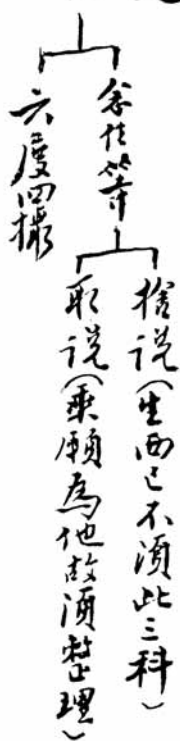 念住等
捨说(生西已不須此三科)
取说(乘願為他故須整理)
六度四攝